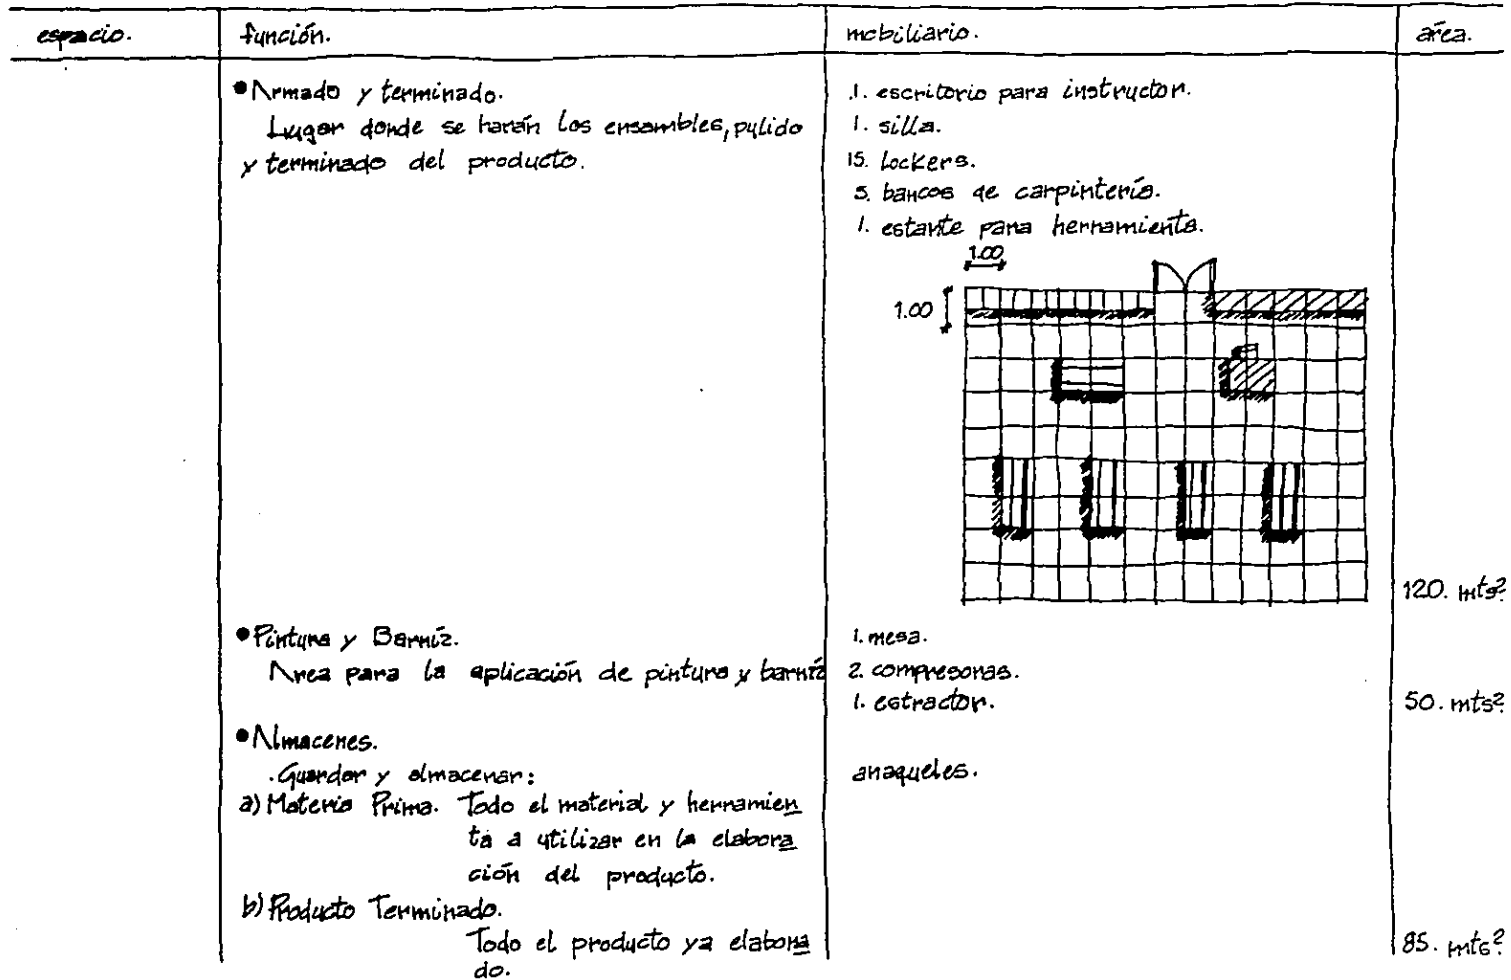 espacio.
función.
mobiliario.
área.
•Armado y terminado.
Lugar donde se harán los ensambles, pulido
y terminado del producto.
1. escritorio para instructor.
1. silla.
15. lockers.
5. bancos de carpintería.
1. estante para herramienta.
1.00
1.00
120. mts²
•Pintura y Barníz.
Area para la aplicación de pintura y barníz
1. mesa.
2. compresoras.
1. estractor.
50. mts²
•Almacenes.
.Guardar y almacenar:
anaqueles.
a) Materia Prima. Todo el material y herramien
ta a utilizar en la elabora
ción del producto.
b) Producto Terminado.
Todo el producto ya elabora
do.
85. mts²